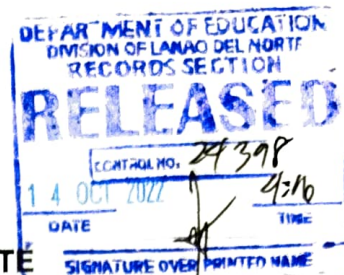 DEPARTMENT OF EDUCATION
DIVISION OF LANAO DEL NORTE
RECORDS SECTION
RELEASED
CONTROL NO. 24398
14 OCT 2022 4:16
DATE TIME
TE
SIGNATURE OVER PRINTED NAME